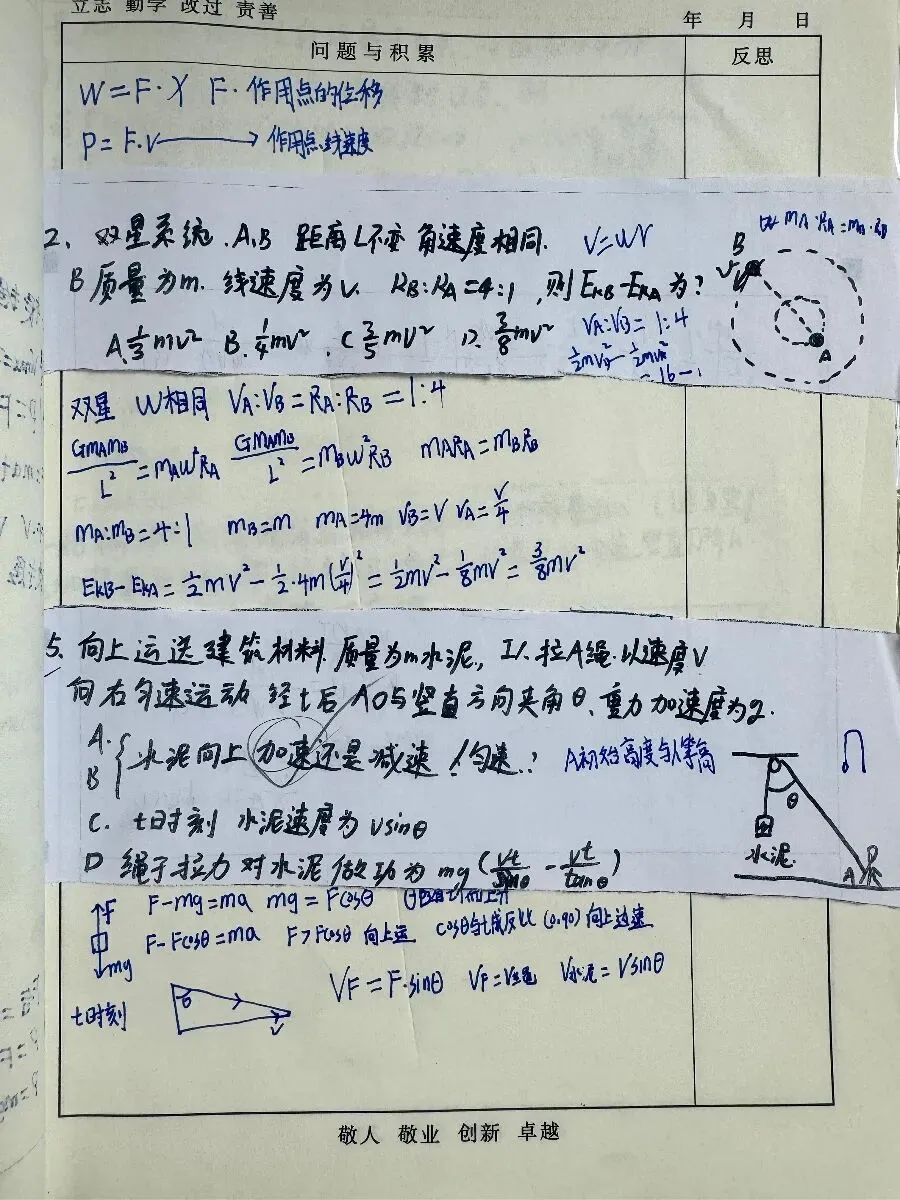 立志 勤学 改过 责善
年 月 日
问题与积累 反思
W=F·X F·作用点的位移
P=F·V → 作用点线速度
2、双星系统 A、B 距离L不变 角速度相同. V=ωr
B质量为m. 线速度为v. RB:RA=4:1,则EkB-EkA为?
A.1/3mv² B.1/4mv² C 3/5mv² D.3/8mv²
VA:VB=1:4
=16-1
mA·RA=mB·RB
B
v
A
双星 W相同 VA:VB=RA:RB=1:4
GmAmB/L²=mAω²RA GmAmB/L²=mBω²RB mARA=mBRB
mA:mB=4:1 mB=m mA=4m VB=V VA=V/4
EkB-EkA=1/2mv²-1/2·4m(v/4)²=1/2mv²-1/8mv²=3/8mv²
5、向上运送建筑材料 质量为m水泥,工人拉A绳以速度V
向右匀速运动 经t后 AO与竖直方向夹角θ、重力加速度为g.
A.
B { 水泥向上加速还是减速/匀速?
A初始高度与人等高
C. t时刻 水泥速度为vsinθ
D 绳子拉力对水泥做功为mg(vt/sinθ-vt/tanθ)
θ
水泥
A
F
mg
F-mg=ma mg=Fcosθ
F-Fcosθ=ma F>Fcosθ 向上运 cosθ与t成反比 (0.90) 向上
t时刻
θ
v
VF=F·sinθ VF=V绳 V水泥=Vsinθ
敬人 敬业 创新 卓越